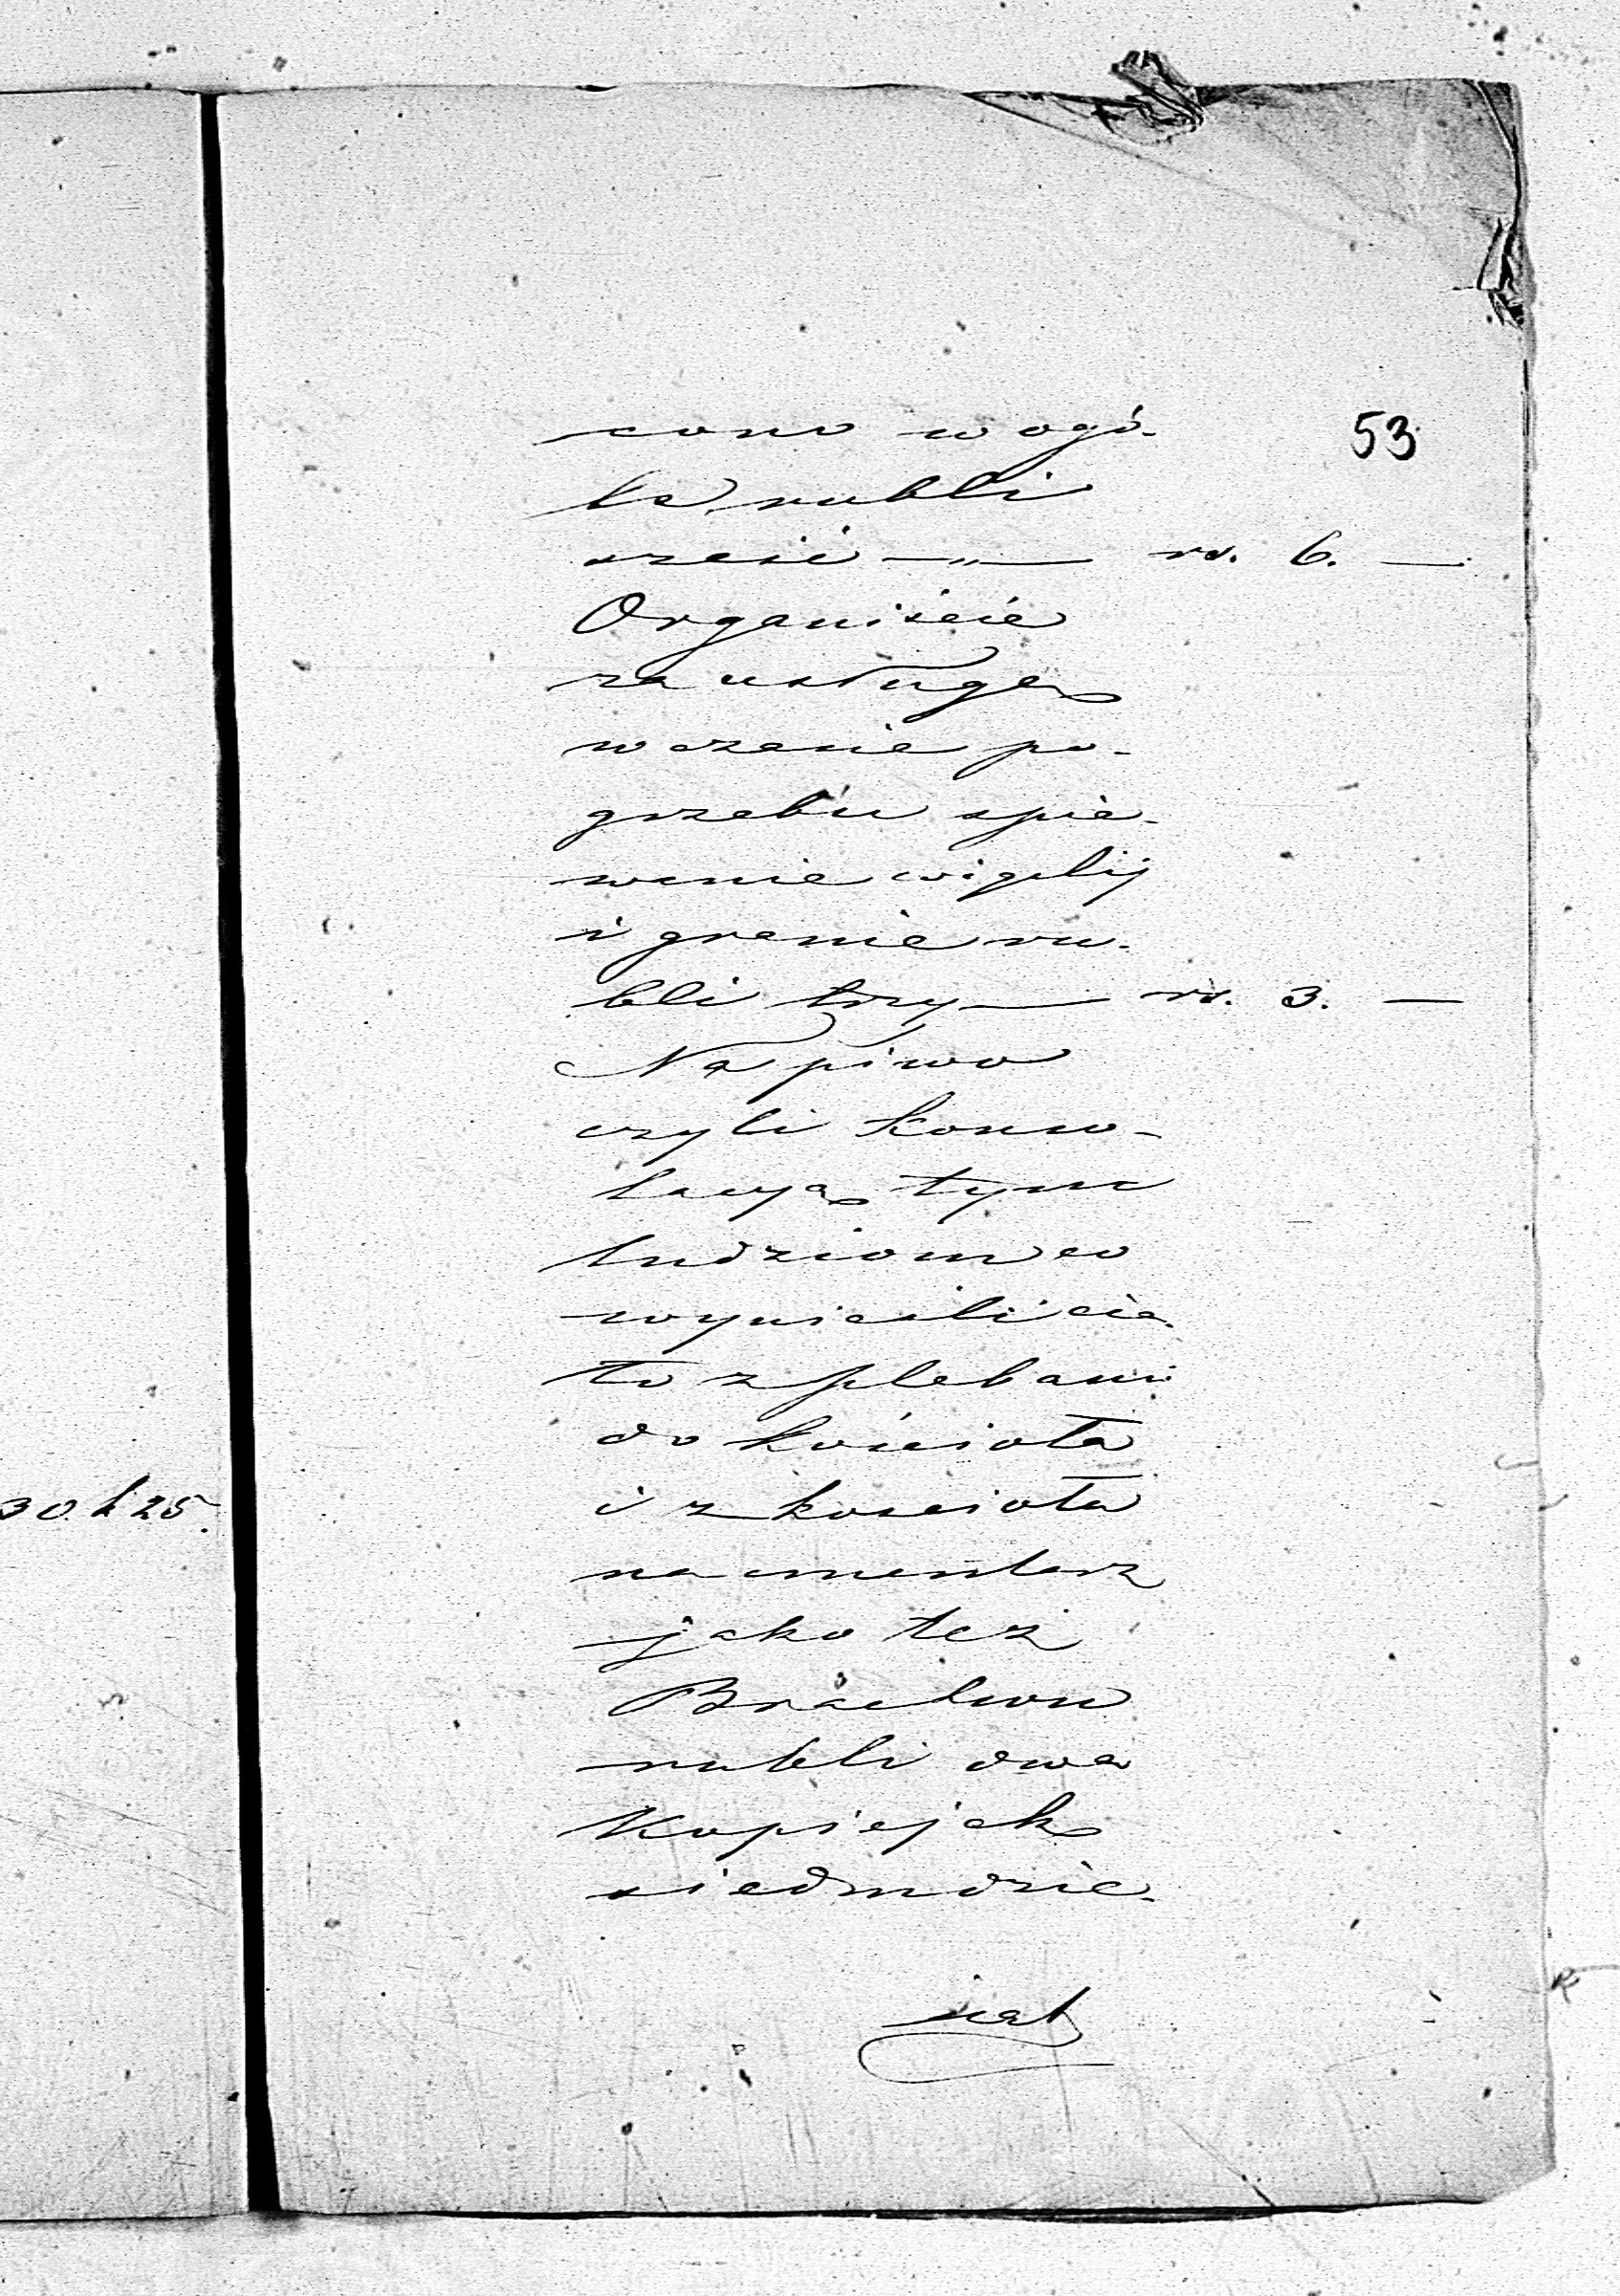 53
cono w ogó-
le rubli
sześć —„— rs. 6. —
Organiście
za usługę
w czasie po-
grzebu śpie-
wanie wigilij
i granie ru-
bli trzy — rs. 3. —
Na piwo
czyli konso-
lacyą tym
ludziom co
wynieśli cia-
ło z plebani
do kościoła
i z kościoła
na cmentarz
jako też
Bractwu
rubli dwa
kopiejek
siedmdzie-
siąt
30 k 25.